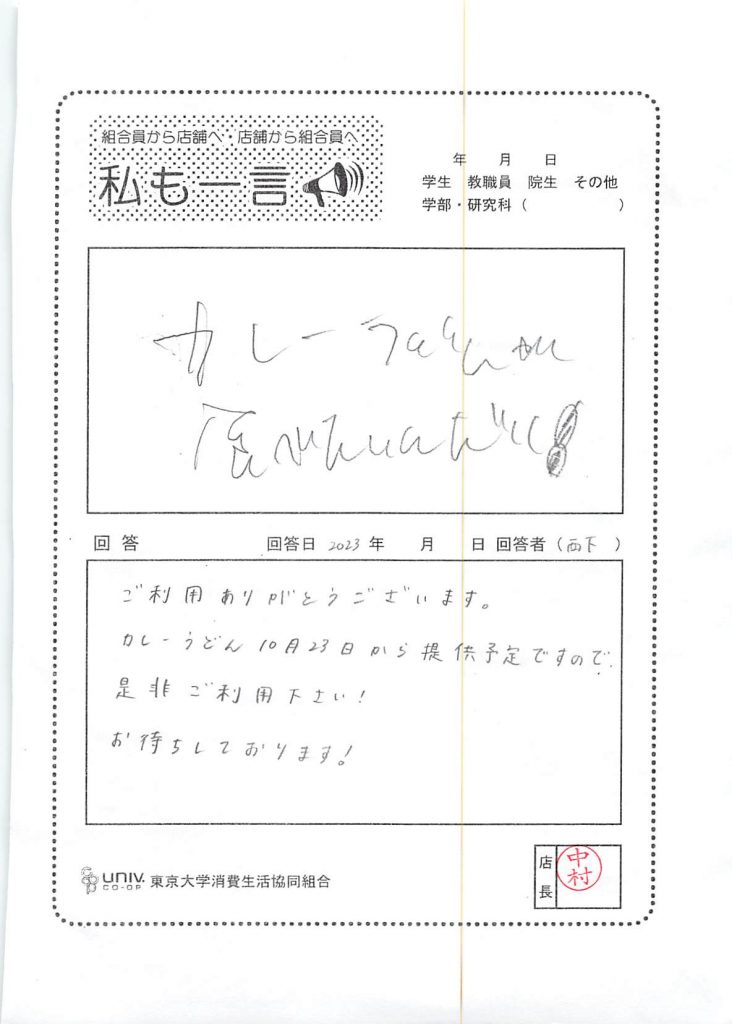 組合員から店舗へ・店舗から組合員へ
私も一言
年 月 日
学生 教職員 院生 その他
学部・研究科( )
カレーうどんが
食べたいんだが!
回答 回答日 2023 年 月 日 回答者(西下)
ご利用ありがとうございます。
カレーうどん10月23日から提供予定ですので、
是非ご利用下さい!
お待ちしております!
UNIV. CO-OP 東京大学消費生活協同組合
店長
中村